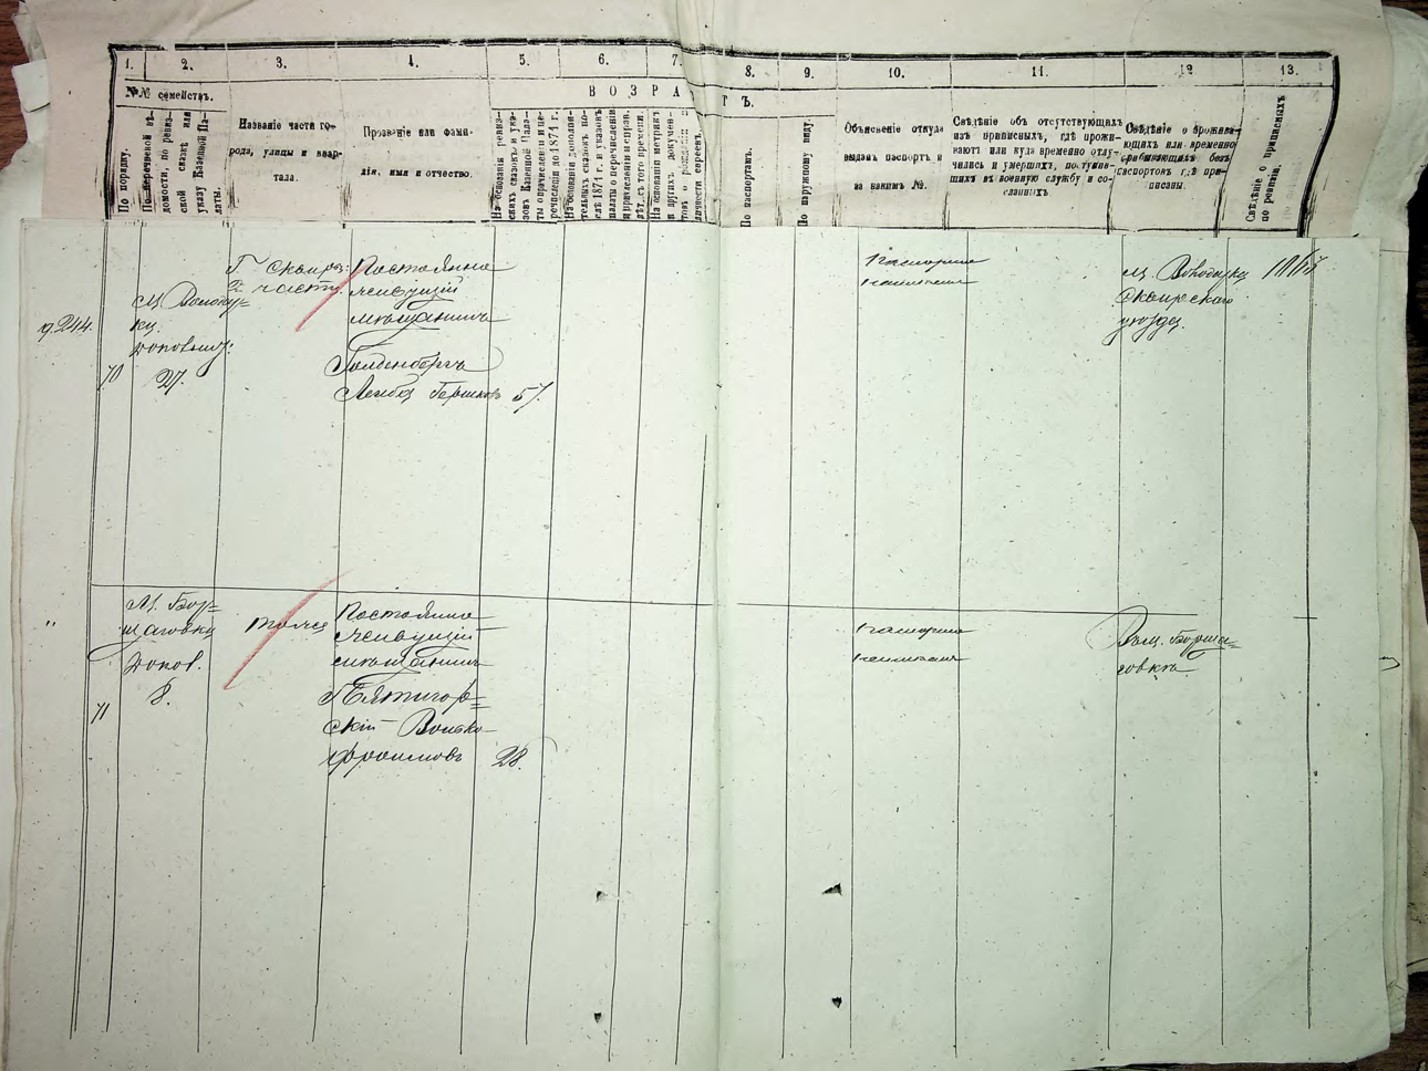 1.
2.
3.
4.
5.
6.
7.
8.
9.
10.
11.
12
13.
№№ семействъ.
ВОЗРА
ТЪ.
По порядку.
По перечневой вѣ-
домости, по ревиз-
ской сказкѣ или
указу Казенной Па-
латы.
Названіе части го-
рода, улицы и квар-
тала.
Прозваніе или фами-
лія, имя и отчество.
На основаніи ревиз-
скихъ сказокъ и ука-
зовъ Казенной Пала-
ты о причисленіи и пе-
речисленіи до 1874 г.
На основаніи дополни-
тельныхъ сказокъ по-
слѣ 1874 г. и указовъ
палаты о перечисленіи
и причисленіи и прав.
лѣт. съ того времени.
На основаніи метрикъ
и другихъ докумен-
товъ о рожденіи и
личности евреевъ.
По паспортамъ.
По наружному виду.
Объясненіе откуда
выданъ паспортъ и
за какимъ №.
Свѣдѣніе объ отсутствующихъ
изъ приписныхъ, гдѣ прожи-
ваютъ или куда временно отлу-
чились и умершихъ, поступив-
шихъ въ военную службу и со-
сланныхъ
Свѣдѣніе о прожива-
ющихъ или временно
пребывающихъ безъ
паспортовъ гдѣ при-
писаны.
Свѣдѣніе о приписныхъ
по ревизіи.
д. 244.
70
м. Володар-
ки
27.
Г. Сквира:
2 части
Постоянно
живущій
мѣщанинъ
Гольденбергъ
Лейба Гершковъ
57.
Паспорта
неимѣетъ
м. Володарки
Сквирскаго
уѣзда.
"
71
М. Бор=
щаговки
допов.
8.
тоже
Постоянно
живущій
мѣщанинъ
Пятигор=
скій Волько
Фроимовъ
28.
Паспорта
неимѣетъ
Въ м. Борща=
говкѣ